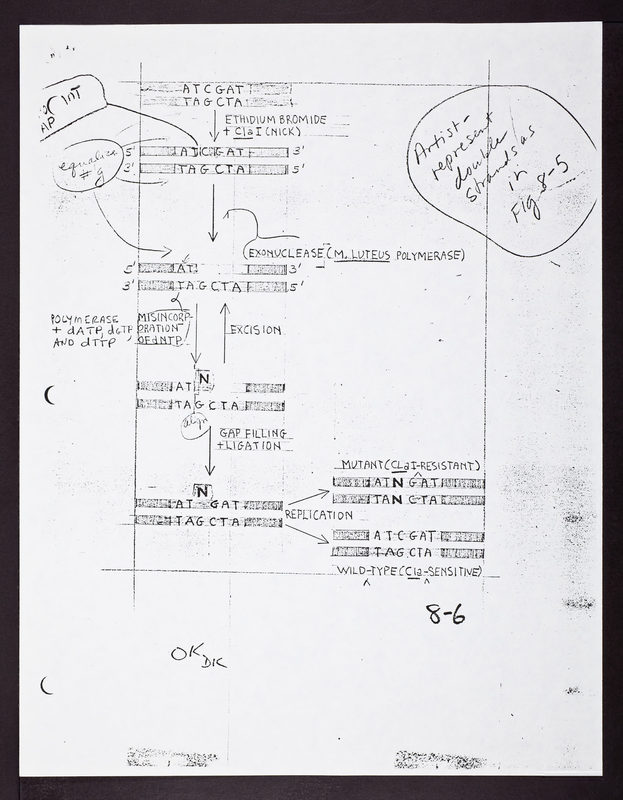 ATCGAT
TAGCTA
INT
AP
ETHIDIUM BROMIDE
+ ClaI (NICK)
5' ATCGAT 3'
3' TAGCTA 5'
equalize
# 9
Artist-
represent
double
strands as
in
Fig 8-5
EXONUCLEASE (M. LUTEUS POLYMERASE)
5' AT 3'
3' TAGCTA 5'
POLYMERASE
+ dATP, dGTP
AND dTTP
MISINCORP-
ORATION
OF dNTP
EXCISION
N
AT
TAGCTA
align
GAP FILLING
+ LIGATION
MUTANT (ClaI-RESISTANT)
ATNGAT
TANCTA
N
AT GAT
TAGCTA
REPLICATION
ATCGAT
TAGCTA
WILD-TYPE (Cla-SENSITIVE)
8-6
OK
DK